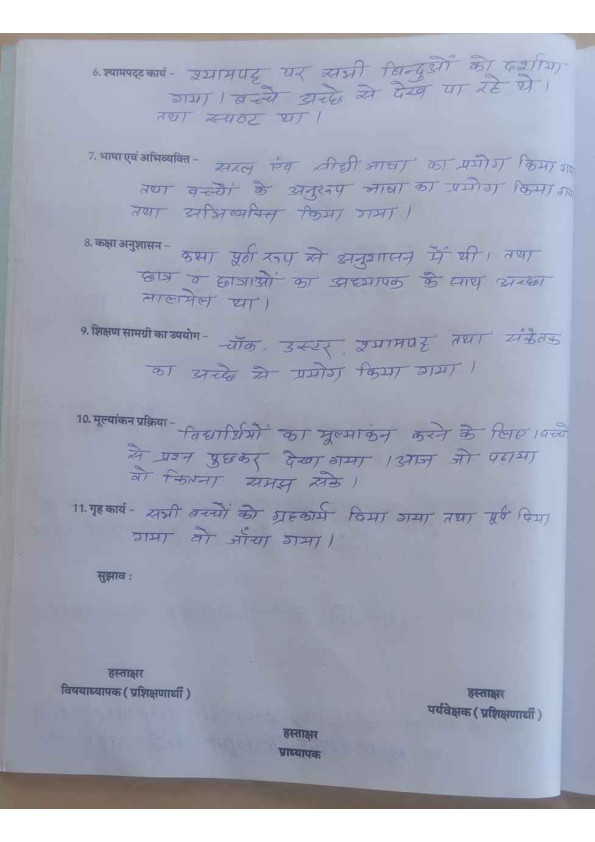 6. श्यामपट्ट कार्य - श्यामपट्ट पर सभी बिन्दुओं को दर्शाया
गया। बच्चे अच्छे से देख पा रहे थे।
तथा स्पष्ट था।
7. भाषा एवं अभिव्यक्ति - सरल एंव सीधी भाषा का प्रयोग किया गया
तथा बच्चों के अनुरूप भाषा का प्रयोग किया गया
तथा अभिव्यक्ति किया गया।
8. कक्षा अनुशासन - कक्षा पूर्ण रूप से अनुशासन में थी। तथा
छात्र व छात्राओं का अध्यापक के साथ अच्छा
तालमेल था।
9. शिक्षण सामग्री का उपयोग - चॉक, डस्टर, श्यामपट्ट तथा संकेतक
का अच्छे से प्रयोग किया गया।
10. मूल्यांकन प्रक्रिया - विद्यार्थियों का मूल्यांकन करने के लिए। बच्चों
से प्रश्न पुछकर देखा गया। आज जो पढ़ाया
वो कितना समझ सके।
11. गृह कार्य - सभी बच्चों को ग्रहकार्य दिया गया तथा पूर्व दिया
गया वो जाँचा गया।
सुझाव :
हस्ताक्षर
विषयाध्यापक ( प्रशिक्षणार्थी )
हस्ताक्षर
पर्यवेक्षक ( प्रशिक्षणार्थी )
हस्ताक्षर
प्राध्यापक